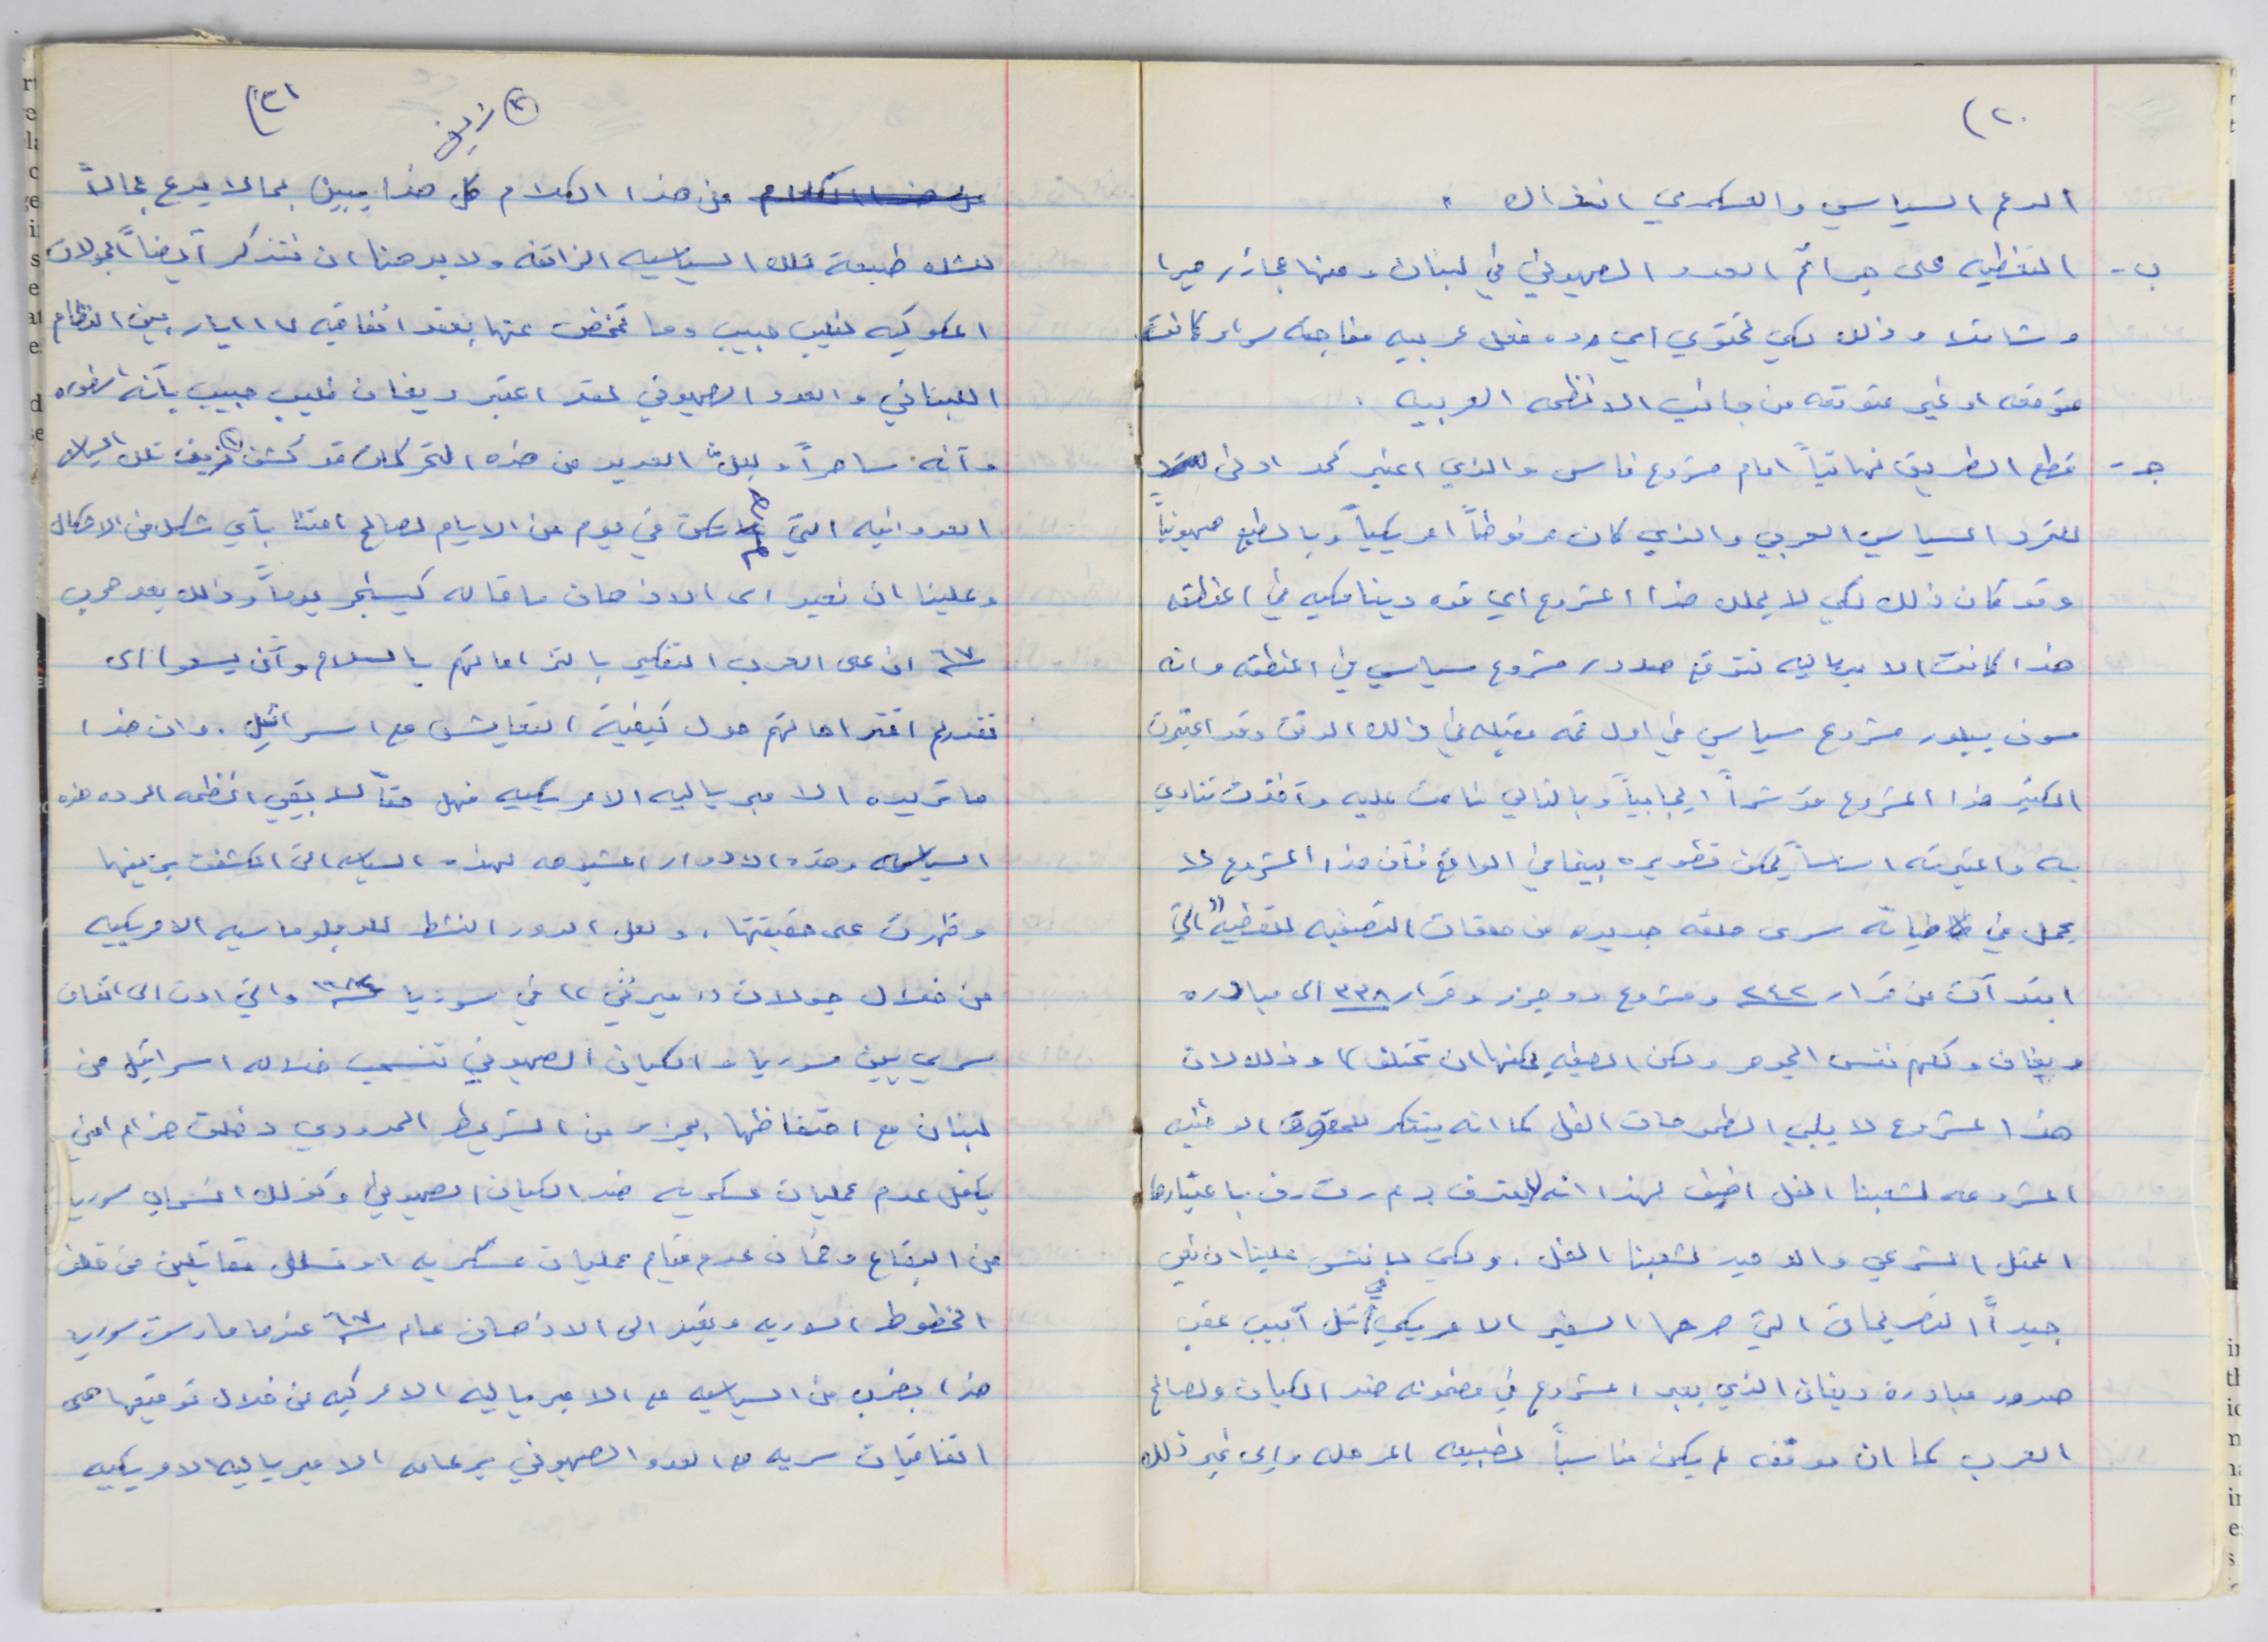 ٢٠)
الدعم السياسي والعسكري انذاك .
ب- التغطيه على جرائم العدو الصهيوني في لبنان ومنها مجازر صبرا
وشاتيلا وذلك لكي تحتوي اي رده فعل عربيه مفاجئه سواء كانت
متوقعه او غير متوقعه من جانب الانظمه العربيه .
ج- قطع الطريق نهائياً امام مشروع فاس والذي اعتبر كحد ادنى
للتردد السياسي العربي والذي كان مرفوضاً امريكياً وبالطبع صهيونياً
وقد كان ذلك لكي لا يملك هذا المشروع اي قوه ديناميكيه في المنطقه
هذا كانت الامبرياليه تتوقع صدور مشروع سياسي في المنطقه وانه
سوف يبلور مشروع سياسي في اول قمه مقبله في ذلك الوقت وقد اعتبرت
الكثير هذا المشروع مؤشراً ايجابياً وبالتالي تنادي
به واعتبرته اساساً يمكن تطويره بينما في الواقع فأن هذا المشروع لا
يحمل في طياته سوى حلقه جديده من حلقات التصفيه للقضيه " التي
ابتدأت من قرار ٢٤٢ ومشروع روجرز وقرار ٣٣٨ الى مبادره
ريغان وكلهم نفس الجوهر ولكن الصيغه يمكنها ان تختلف " وذلك لان
هذا المشروع لا يلبي الطموحات الفل كما انه يتنكر للحقوق الوطنيه
المشروعه لشعبنا الفل اضيف لهذا انه لا يعترف بـ م ت ف باعتبارها
الممثل الشرعي والوحيد لشعبنا الفل . ولكي لا ننسى علينا ان نعي
جيداً التصريحات التي صرحها السفير الامريكي في تل أبيب عقب
صدور مبادرة ريغان الذي يعبر المشروع في مضمونه ضد الكيان ولصالح
العرب كما ان موقفه لم يكن مناسباً لطبيعه المرحله والى غير ذلك
٢١)
② زيف
من هذا الكلام من هذا الكلام كل هذا يبين بما لا يدع مجالاً
للشك طبيعة تلك السياسيه الزائفه ولا بد هنا ان نتذكر أيضاً الجولات
المكوكيه لفليب حبيب وما تمخض عنها بعقد اتفاقيه ١٧ ايار بين النظام
اللبناني والعدو الصهيوني لقد اعتبر ريغان فليب حبيب بأنه اسطوره
وأنه ساحراً ولعل العديد من هذه التحركات قد كشف ① زيف تلك السياسه
العدوانيه التي لم تكن في يوم من الايام لصالح امتنا بأي شكل من الاشكال
وعلينا ان نعيد الى الاذهان ما قاله كيسنجر يوماً وذلك بعد حرب
٦٧ ان على العرب التفكير بالتزاماتهم بالسلام وأن يسعوا الى
تقديم اقتراحاتهم حول كيفية التعايش مع اسرائيل . وان هذا
ما تريده الامبرياليه الامريكيه فهل حقاً لا يبقي انظمه الرده هذه
السياسه وهذه الادوار المشبوهه لهذه السياسه التي انكشفت بزيفها
وظهرت على حقيقتها ، ولعل الدور النشط للدبلوماسيه الامريكيه
من خلال جولات " ميرفي " في سوريا والتي ادت الى اتفاق
سري بين سوريا والكيان الصهيوني تنسحب خلاله اسرائيل من
لبنان مع احتفاظها بجزء من الشريط الحدودي وخلق حزام امني
يكفل عدم عمليات عسكريه ضد الكيان الصهيوني وكذلك انسحاب سوريا
من البقاع وضمان عدم قيام عمليات عسكريه او تسلل مقاتلين من خلف
الخطوط السوريه ونعيد الى الاذهان عام ٦٧ عندما مارست سوريا
هذا بضرب من السياسه مع الامبرياليه الامركيه من خلال توقيعها على
اتفاقيات سريه مع العدو الصهيوني برعايه الامبرياليه الامريكيه